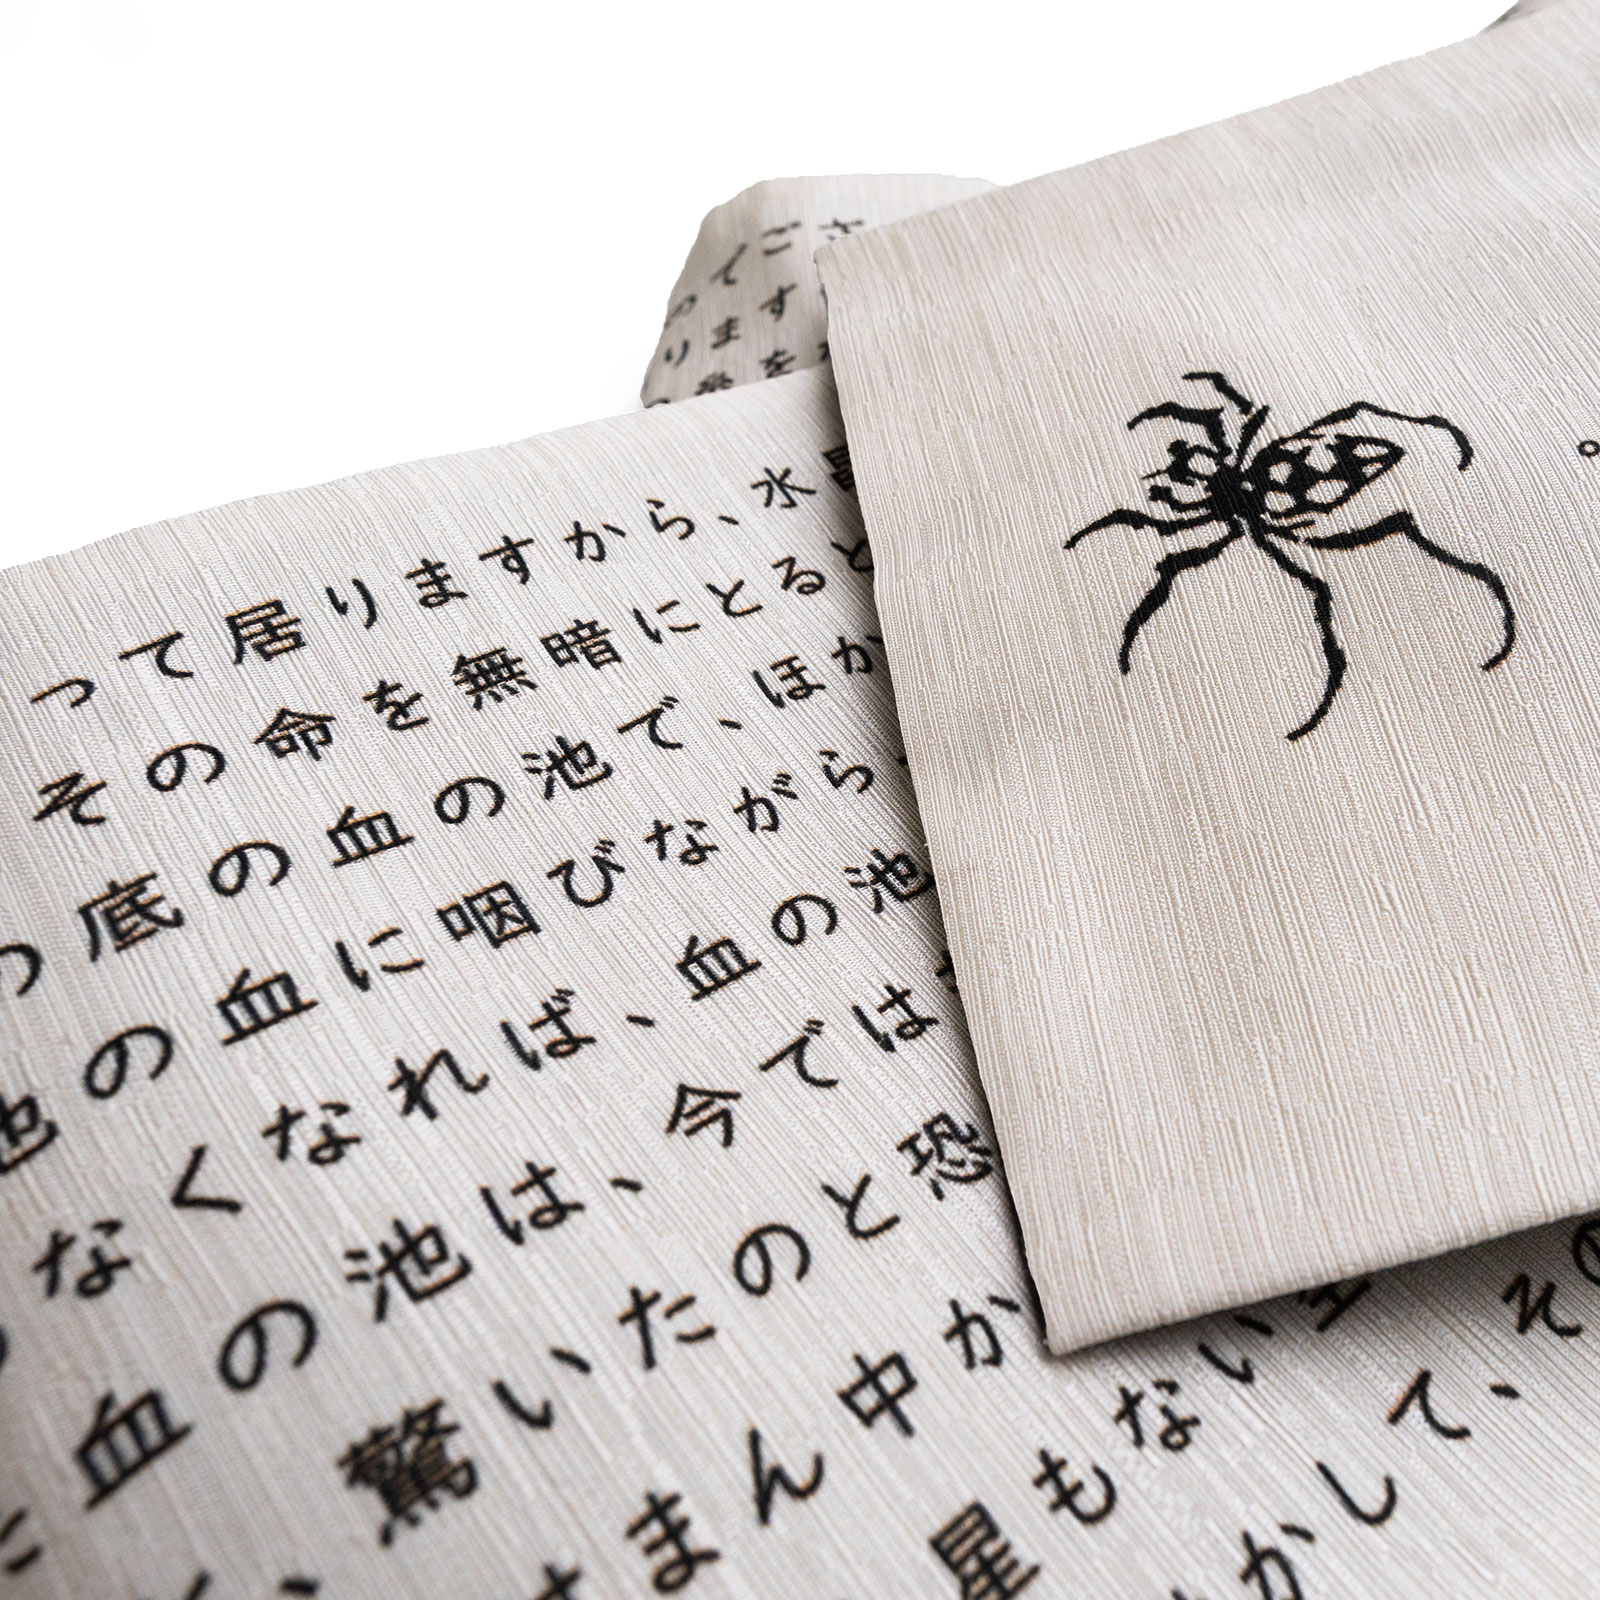 でご
ります
を
って居りますから、水晶
その命を無暗にとると
底の血の池で、ほか
池の血に咽びながら、
なくなれば、血の池
血の池は、今では
驚いたのと恐
まん中か
星もない
かして、その